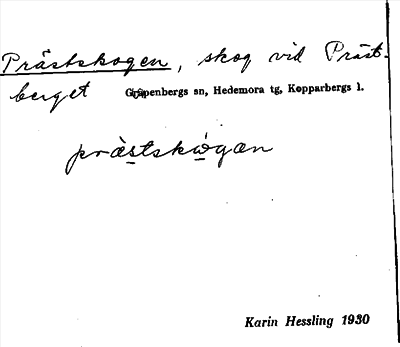 Prästskogen, skog vid Präst-
berget Garpenbergs sn, Hedemora tg, Kopparbergs l.
pràstskògæn
Karin Hessling 1930